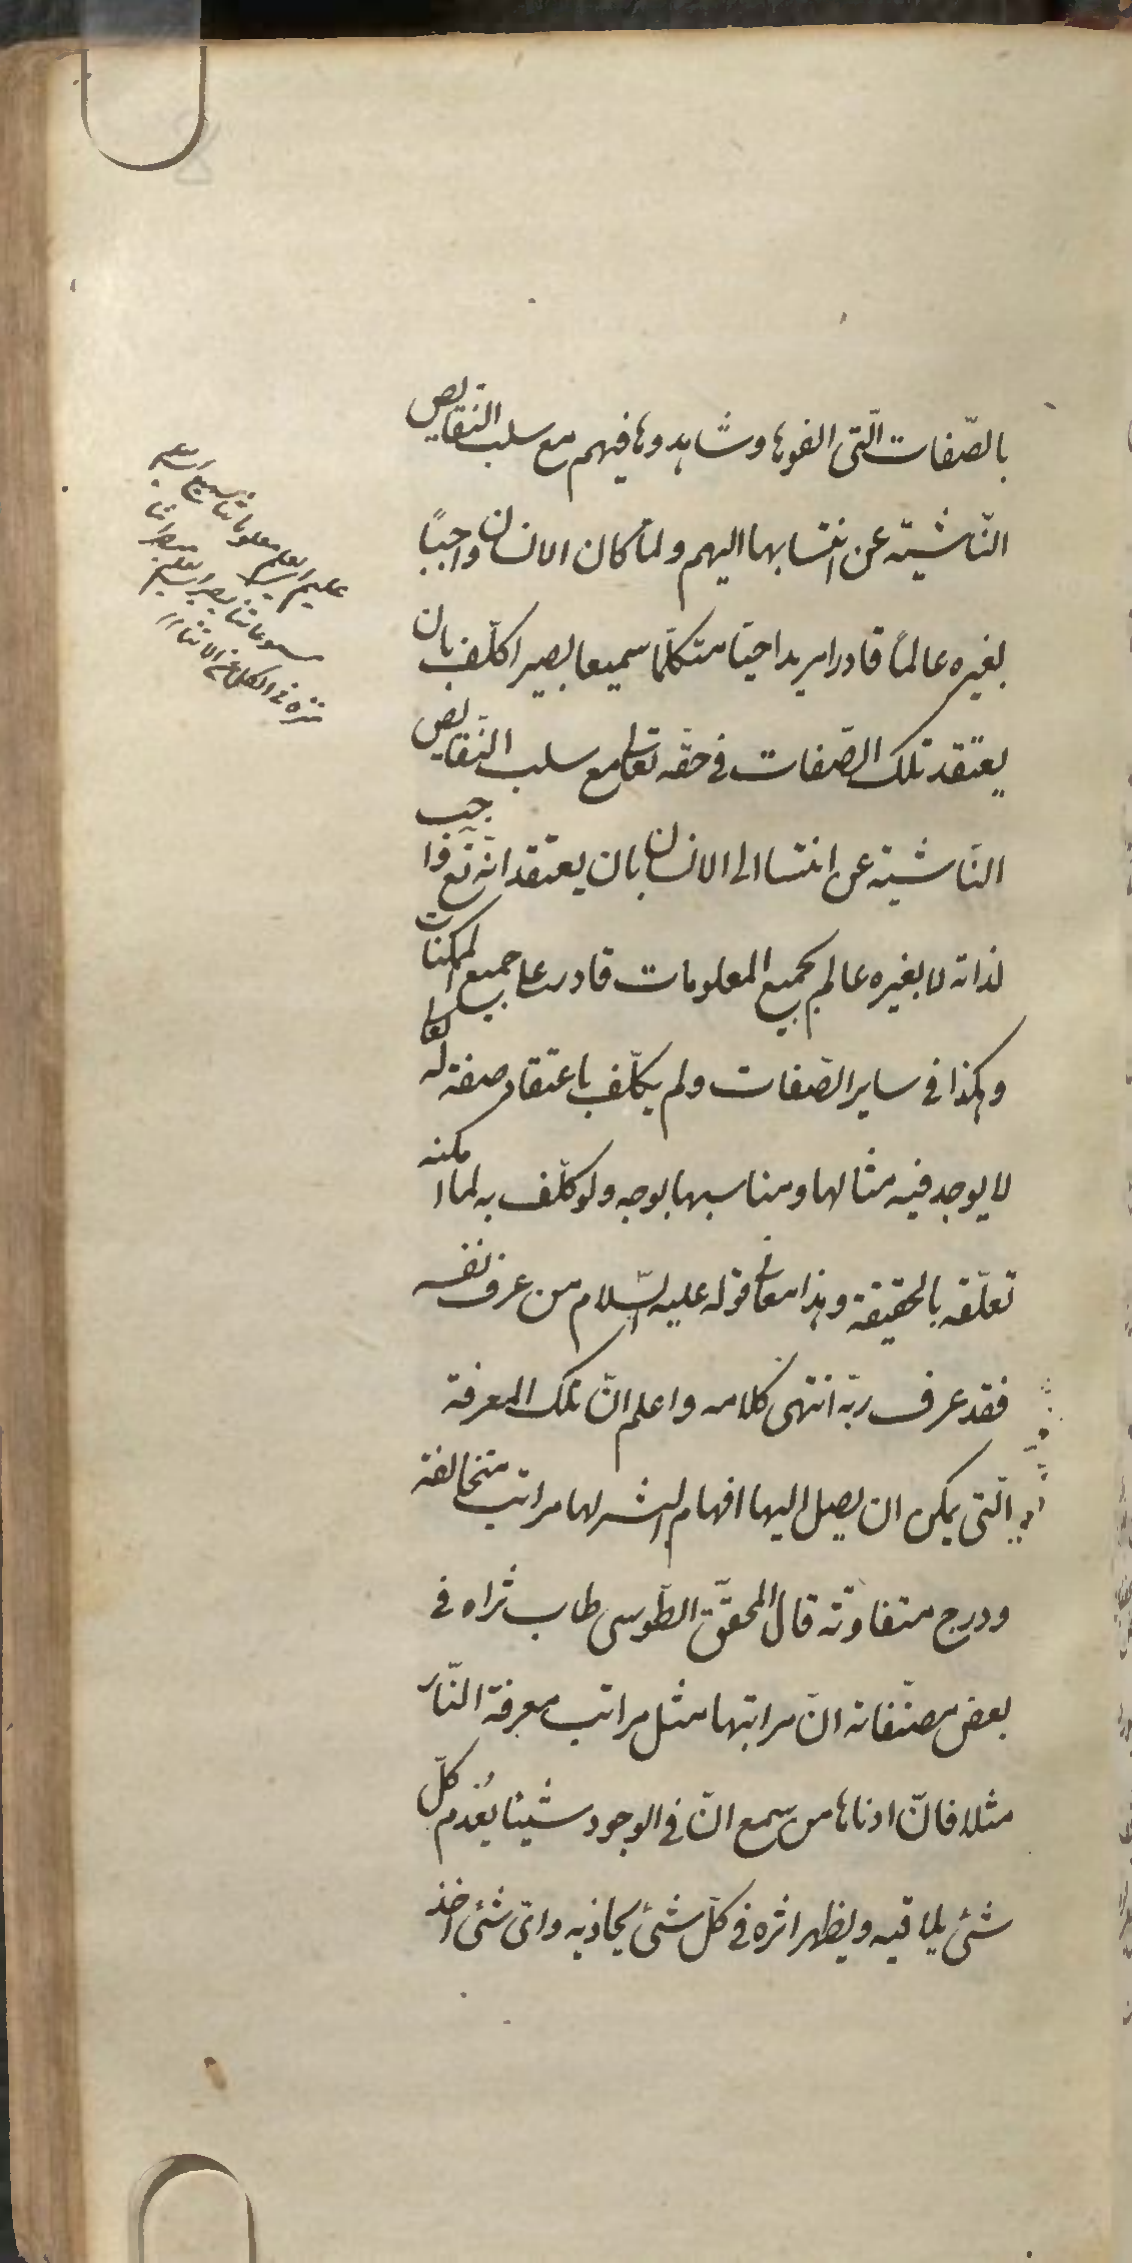 بالصّفات الّتى الفوها وشاهدوها فيهم مع سلب النّقايص
النّاشية عن انتسابها اليهم ولمّا كان الانسان واجبًا
بغيره عالمًا قادرا مريدا حيّا متكلّما سميعا بصيرا كلّف بان
يعتقد تلك الصّفات فى حقّه تعالى مع سلب النّقايص
النّاشية عن انتسا الى الانسان بان يعتقد انّه تع واجب
لذاته لا بغيره عالم بجميع المعلومات قادر على جميع الممكنات
وهكذا فى ساير الصّفات ولم يكلّف باعتقاد صفة له تعالى
لا يوجد فيه مثالها ومناسبها بوجه ولو كلّف به لما امكنه
تعلّقه بالحقيقة وهذا معانى قوله عليه السّلام من عرف نفسه
فقد عرف ربّه انتهى كلامه واعلم انّ تلك المعرفة
الّتى يمكن ان يصل اليها افهام البشر لها مراتب متخالفة
ودرج متفاوتة قال المحقّق الطّوسى طاب ثراه فى
بعض مصنّفاته انّ مراتبها مثل مراتب معرفة النّار
مثلا فانّ ادناها من سمع انّ فى الوجود شيئا يُعْدم كلّ
شئ يلاقيه ويظهر اثره فى كلّ شئ يحاذيه واىّ شئ اخذ